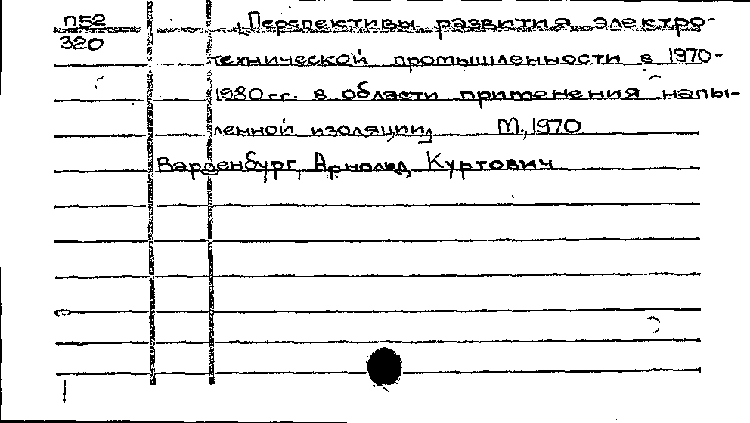 П52 Перспективы развития электро-
320 технической промышленности в 1970-
1980 гг. в области применения напы-
ленной изоляции, М., 1970
Варденбург, Арнольд Куртович